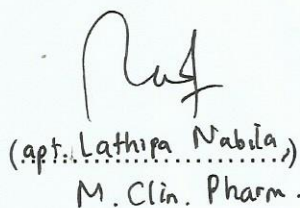 (apt. Lathipa Nabila,)
M. Clin. Pharm.